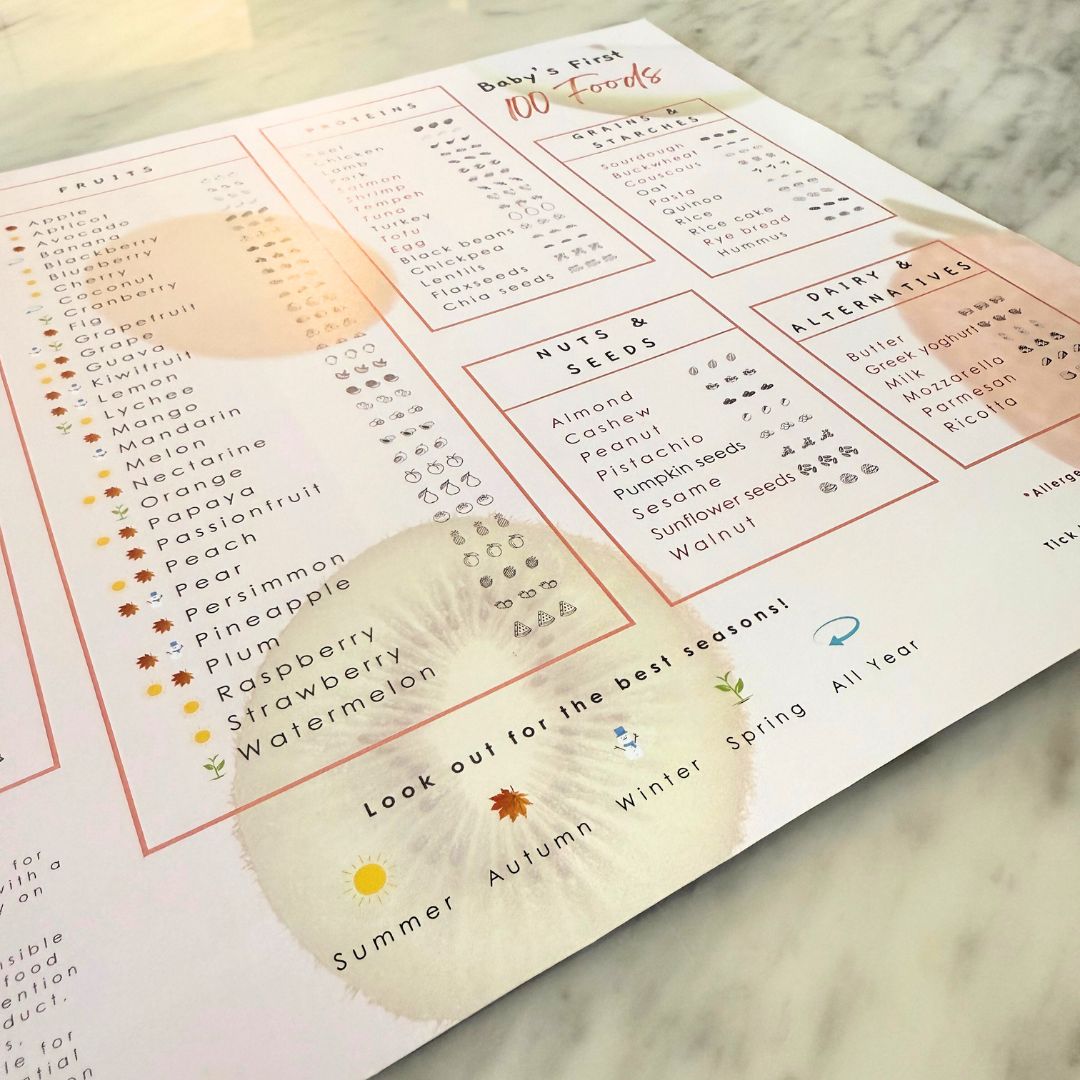 Baby's First
100 Foods
FRUITS
Apple
Apricot
Avocado
Banana
Blackberry
Blueberry
Cherry
Coconut
Cranberry
Fig
Grapefruit
Grape
Guava
Kiwifruit
Lemon
Lychee
Mango
Mandarin
Melon
Nectarine
Orange
Papaya
Passionfruit
Peach
Pear
Persimmon
Pineapple
Plum
Raspberry
Strawberry
Watermelon
PROTEINS
Beef
Chicken
Lamb
Pork
Salmon
Shrimp
Tempeh
Tuna
Turkey
Tofu
Egg
Black beans
Chickpea
Lentils
Flaxseeds
Chia seeds
GRAINS &
STARCHES
Sourdough
Buckwheat
Couscous
Oat
Pasta
Quinoa
Rice
Rice cake
Rye bread
Hummus
NUTS &
SEEDS
Almond
Cashew
Peanut
Pistachio
Pumpkin seeds
Sesame
Sunflower seeds
Walnut
DAIRY &
ALTERNATIVES
Butter
Greek yoghurt
Milk
Mozzarella
Parmesan
Ricotta
*Allerge
Tick
Look out for the best seasons!
Summer
Autumn
Winter
Spring
All Year
for
with a
y on
nsible
food
ention
duct.
s.
le for
tial
on